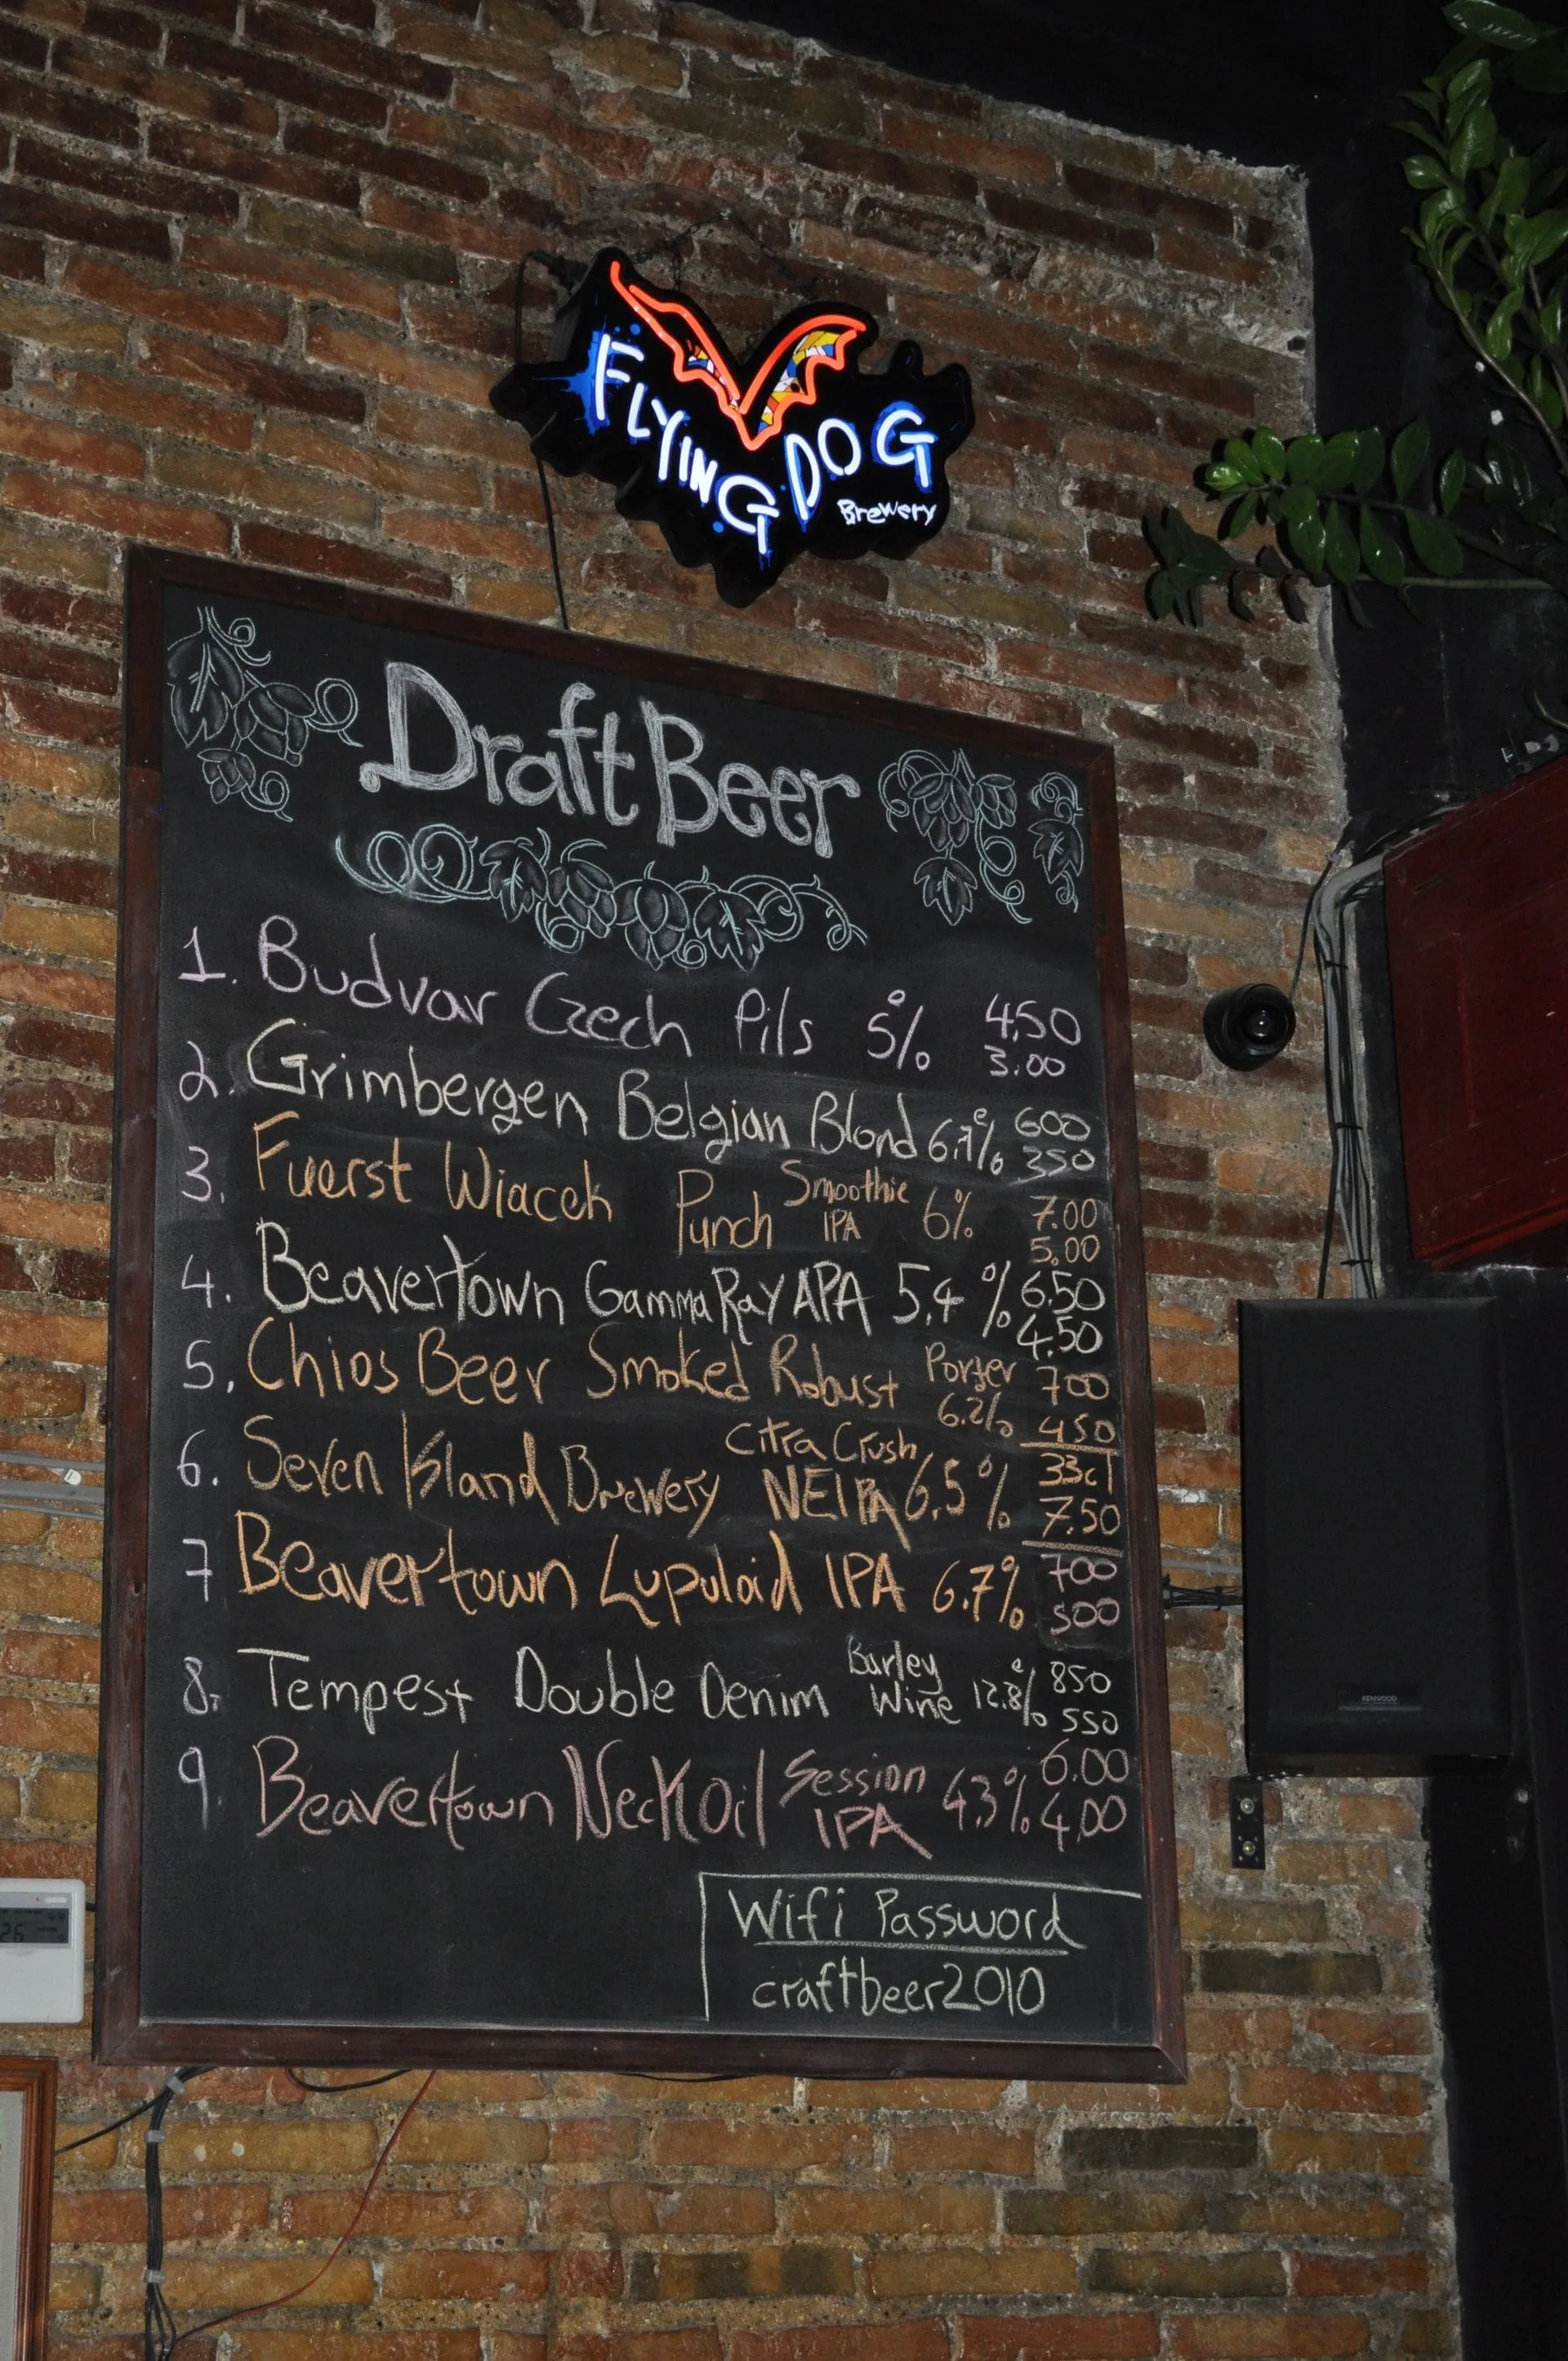 FLYING DOG
Brewery
Draft Beer
1. Budvar Czech Pils 5% 4.50
3.00
2. Grimbergen Belgian Blond 6.7% 600
350
3. Fuerst Wiacek Punch Smoothie IPA 6% 7.00
5.00
4. Beavertown Gamma Ray APA 5,4% 6.50
4.50
5. Chios Beer Smoked Robust Porter 6.2% 700
450
6. Seven Island Brewery Citra Crush NEIPA 6.5% 33cl
7.50
7 Beavertown Lupuloid IPA 6.7% 700
500
8. Tempest Double Denim Barley Wine 12.8% 850
550
9 Beavertown Neck Oil Session IPA 4.3% 6.00
4.00
Wifi Password
craftbeer2010
KENWOOD
26